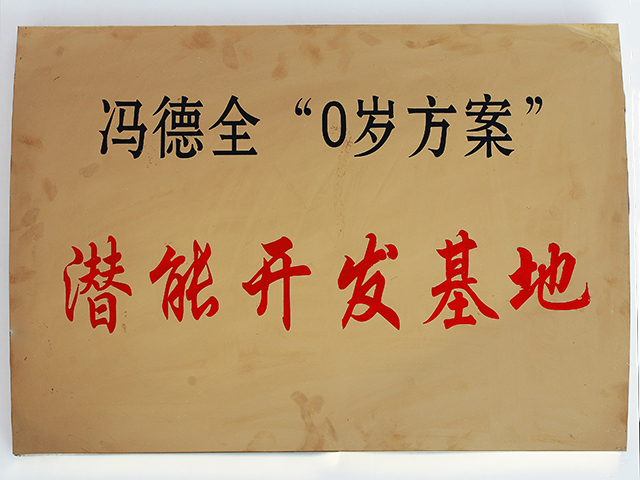 冯德全“0岁方案”
潜能开发基地